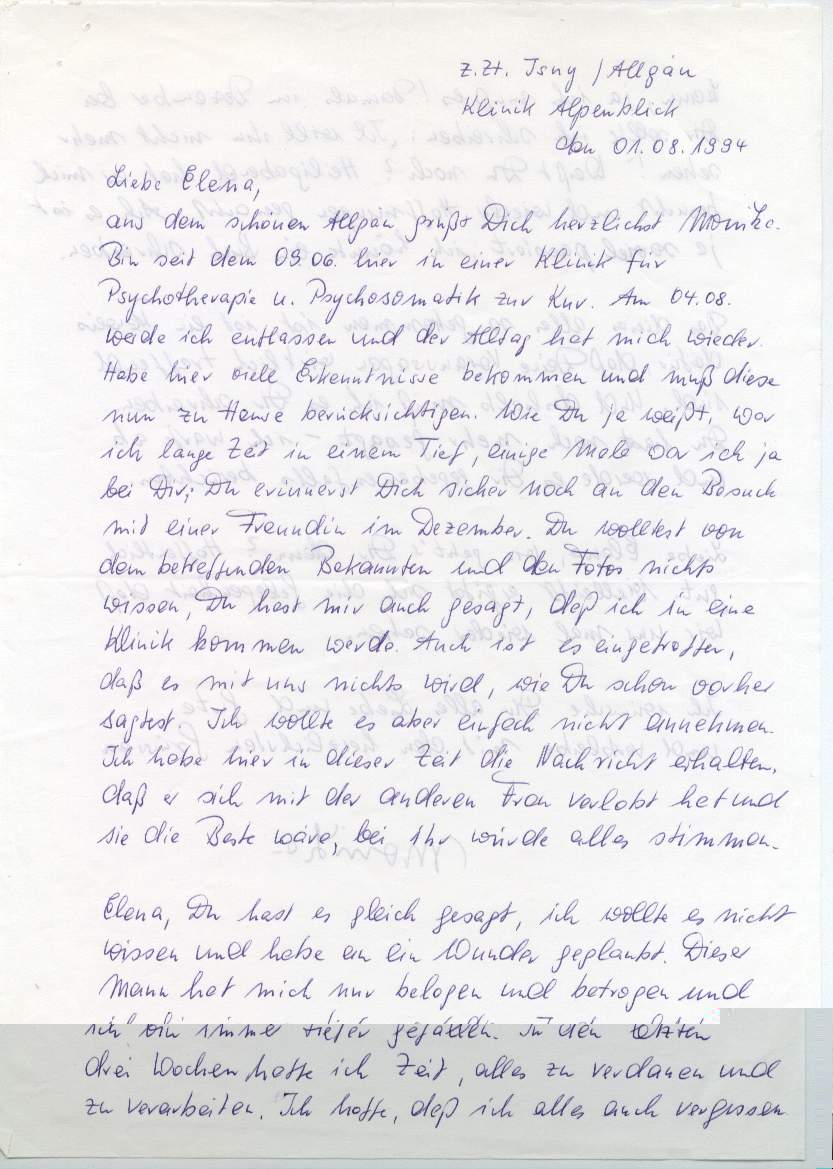 z.Zt. Isny / Allgäu
Klinik Alpenblick
den 01.08.1994
Liebe Elena,
aus dem schönen Allgäu grüßt Dich herzlichst Monika.
Bin seit dem 09.06. hier in einer Klinik für
Psychotherapie u. Psychosomatik zur Kur. Am 04.08.
werde ich entlassen und der Alltag hat mich wieder.
Habe hier viele Erkenntnisse bekommen und muß diese
nun zu Hause berücksichtigen. Wie Du ja weißt, war
ich lange Zeit in einem Tief, einige Male war ich ja
bei Dir; Du erinnerst Dich sicher noch an den Besuch
mit einer Freundin im Dezember. Du wolltest von
dem betreffenden Bekannten und den Fotos nichts
wissen, Du hast mir auch gesagt, daß ich in eine
Klinik kommen werde. Auch ist es eingetroffen,
daß es mit uns nichts wird, wie Du schon vorher
sagtest. Ich wollte es aber einfach nicht annehmen.
Ich habe hier in dieser Zeit die Nachricht erhalten,
daß er sich mit der anderen Frau verlobt hat und
sie die Beste wäre, bei ihr würde alles stimmen.
Elena, Du hast es gleich gesagt, ich wollte es nicht
wissen und habe an ein Wunder geglaubt. Dieser
Mann hat mich nur belogen und betrogen und
ich bin immer tiefer gefallen. In den letzten
drei Wochen hatte ich Zeit, alles zu verdauen und
zu verarbeiten. Ich hoffe, daß ich alles auch vergessen